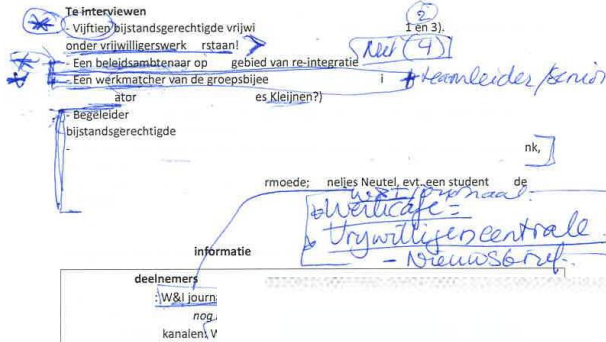 Te interviewen
2
- Vijftien bijstandsgerechtigde vrijwi 1 en 3).
onder vrijwilligerswerk rstaan!
(4)
- Een beleidsambtenaar op gebied van re-integratie
- Een werkmatcher van de groepsbijee i + teamleider/senior
ator es Kleijnen?)
- Begeleider
bijstandsgerechtigde
-
nk,
rmoede; neljes Neutel, evt. een student de
Werkcafé =
Vrijwilligerscentrale
- Nieuwsbrief
informatie
deelnemers
: W&I journa
nog
kanalen: W